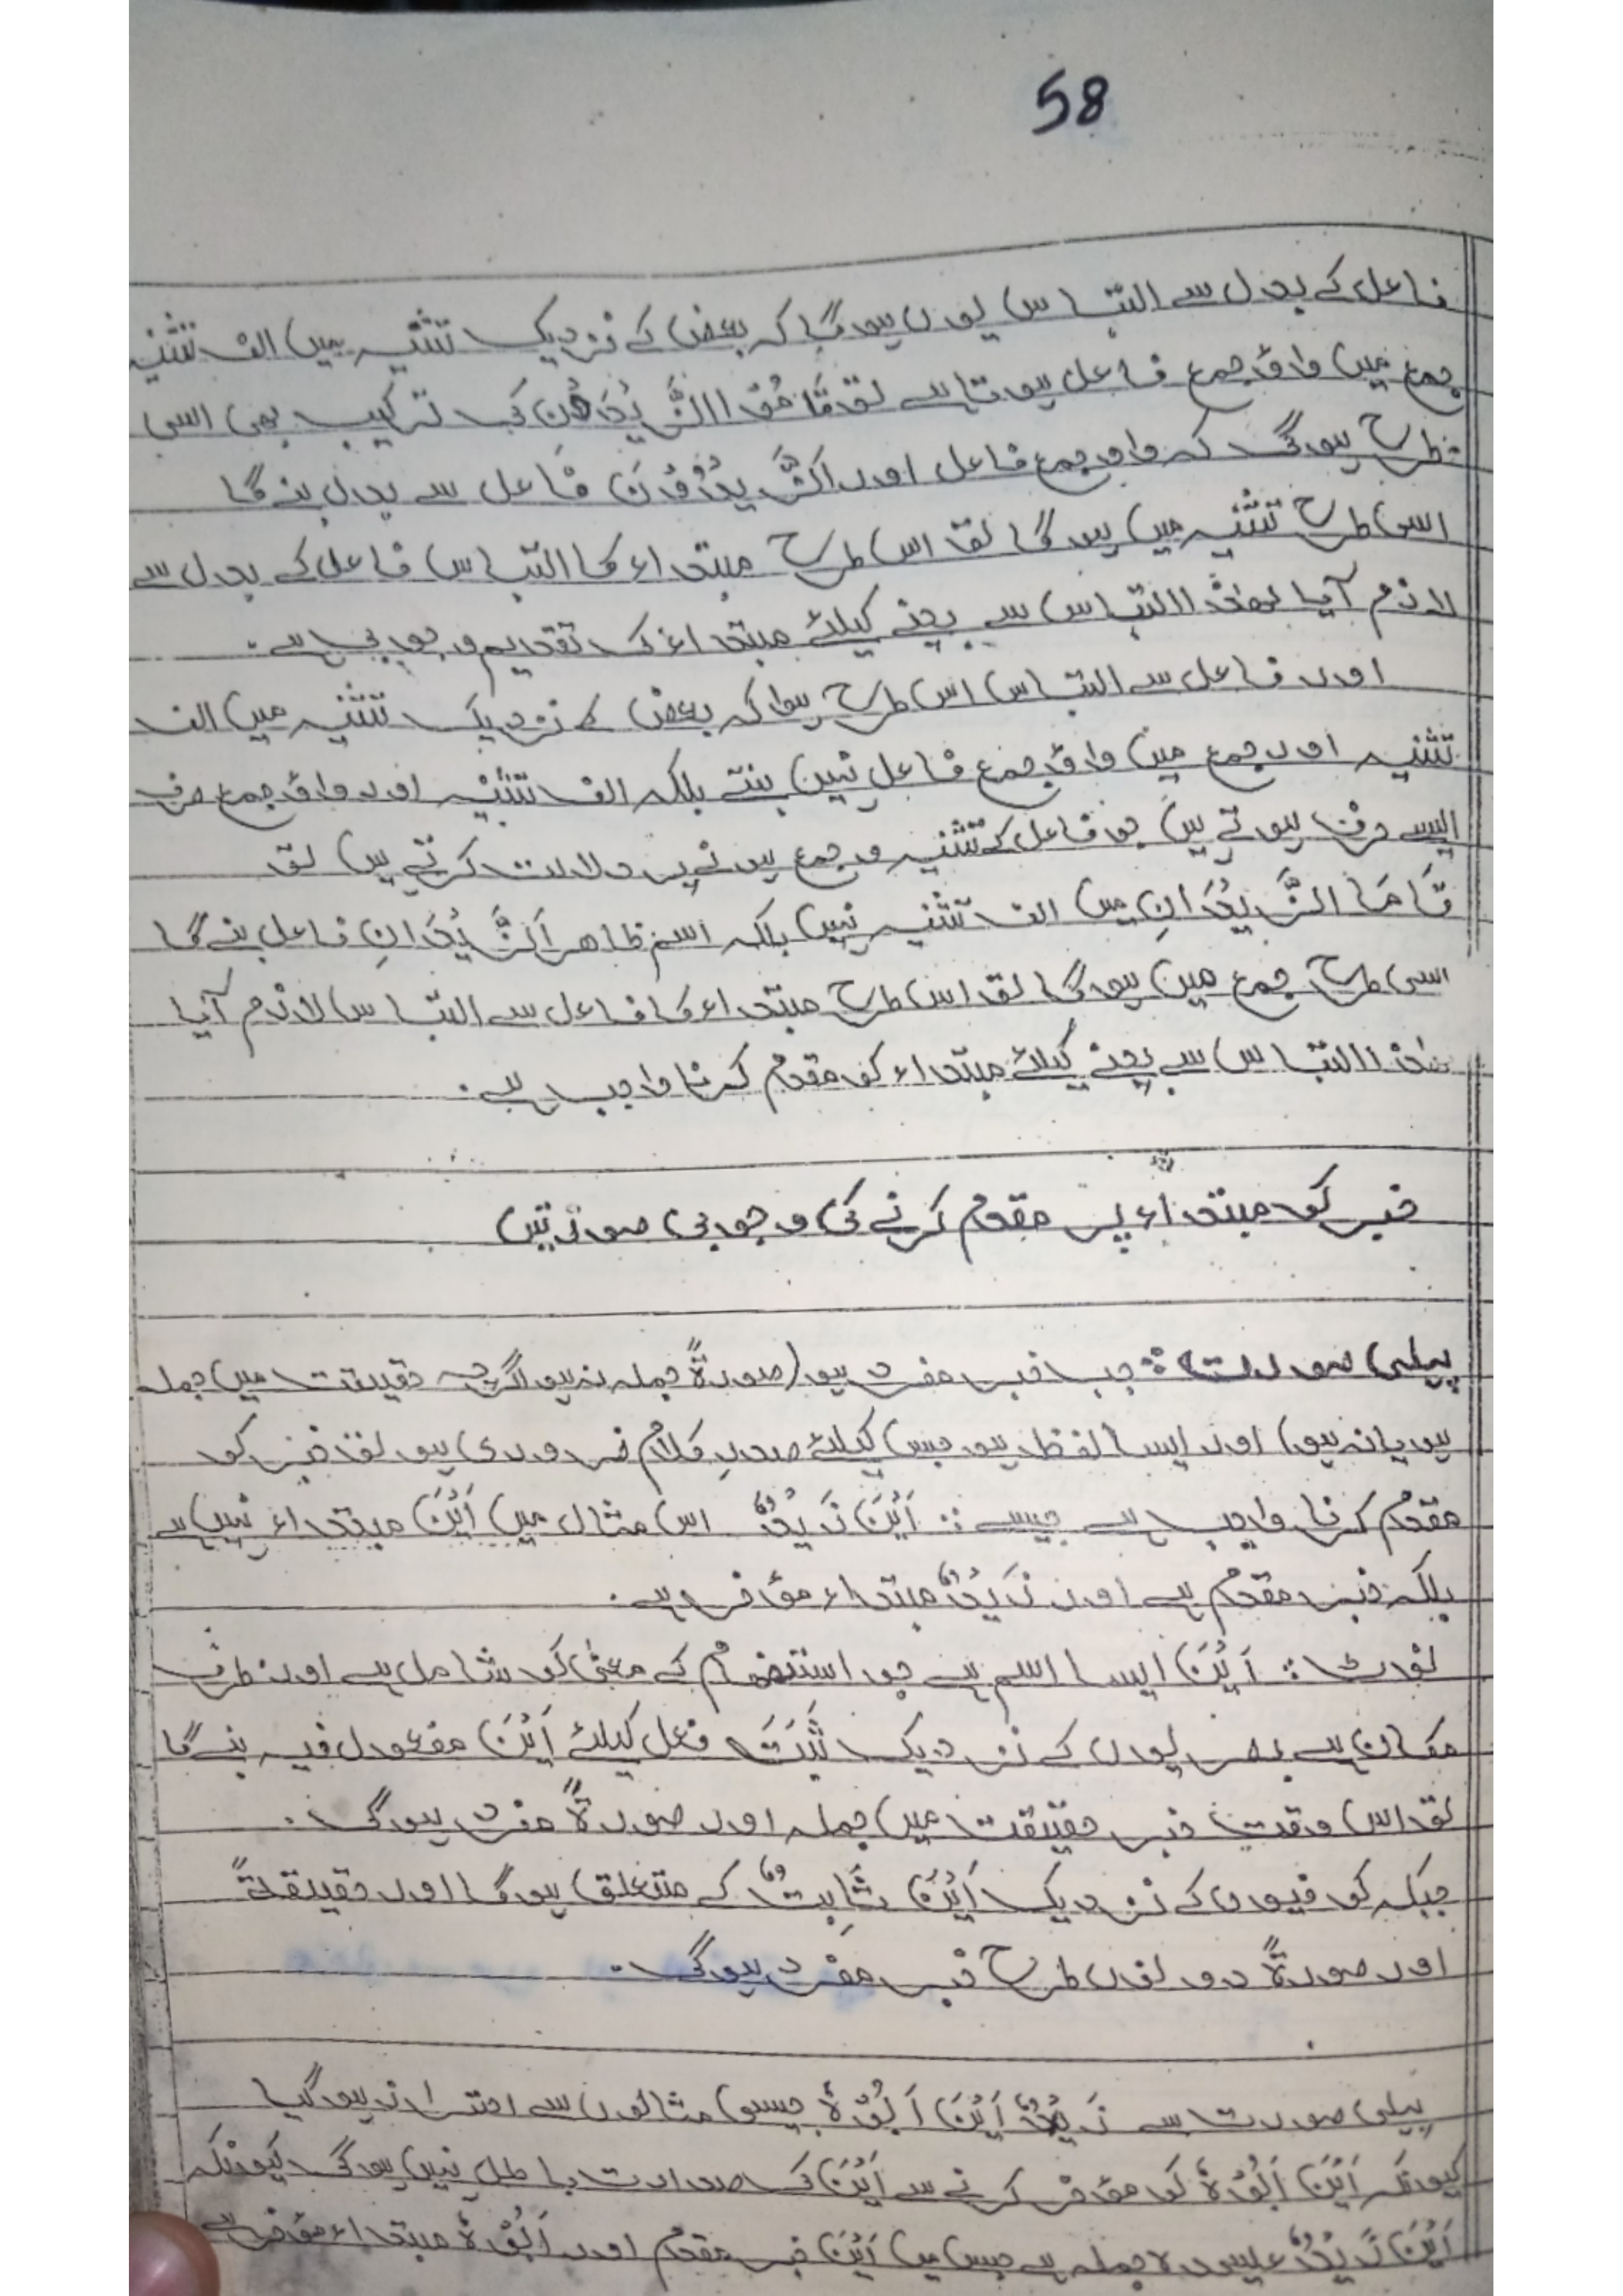 58
فاعل کے بدل سے التباس یوں ہوگا کہ بعض کے نزدیک تثنیہ میں الف تثنیہ
جمع میں واؤ جمع فاعل ہوتا ہے تو قَامُوْا الزَّیْدُوْنَ کی ترکیب بھی اسی
طرح ہوگی کہ واو جمع فاعل اور اَلزَّیْدُوْنَ فاعل سے بدل بنے گا
اسی طرح تثنیہ میں ہوگا تو اس طرح مبتداء کا التباس فاعل کے بدل سے
لازم آیا لھٰذا التباس سے بچنے کیلئے مبتداء کی تقدیم وجوبی ہے۔
اور فاعل سے التباس اس طرح ہوا کہ بعض کے نزدیک تثنیہ میں الف
تثنیہ اور جمع میں واؤ جمع فاعل نہیں بنتے بلکہ الف تثنیہ اور واؤ جمع صرف
ایسے حرف ہوتے ہیں جو فاعل کے تثنیہ و جمع ہونے پر دلالت کرتے ہیں تو
قَامَا الزَّیْدَانِ میں الف تثنیہ نہیں بلکہ اسم ظاھر اَلزَّیْدَانِ فاعل بنے گا
اسی طرح جمع میں ہوگا تو اس طرح مبتداء کا فاعل سے التباس لازم آیا
لھذا التباس سے بچنے کیلئے مبتداء کو مقدم کرنا واجب ہے۔
خبر کو مبتداء پر مقدم کرنے کی وجوبی صورتیں
پہلی صورت: جب خبر مفرد ہو (صورۃً جملہ نہ ہو اگرچہ حقیقت میں جملہ
ہو یا نہ ہو) اور ایسا لفظ ہو جس کیلئے صدرِ کلام ضروری ہو تو خبر کو
مقدم کرنا واجب ہے جیسے: اَیْنَ زَیْدٌ اس مثال میں اَیْنَ مبتداء نہیں ہے
بلکہ خبر مقدم ہے اور زَیْدٌ مبتداء مؤخر ہے۔
نوٹ: اَیْنَ ایسا اسم ہے جو استفھام کے معنٰی کو شامل ہے اور ظرف
مکان ہے بصریوں کے نزدیک ثَبَتَ فعل کیلئے اَیْنَ مفعول فیہ بنے گا
تو اس وقت خبر حقیقت میں جملہ اور صورۃً مفرد ہوگی۔
جبکہ کوفیوں کے نزدیک اَیْنَ ثَابِتٌ کے متعلق ہوگا اور حقیقۃً
اور صورۃً دونوں طرح خبر مفرد ہوگی۔
پہلی صورت سے زَیْدٌ اَیْنَ اَبُوْہُ جیسی مثالوں سے احتراز ہوگیا
کیونکہ اَیْنَ اَبُوْہُ کو مؤخر کرنے سے اَیْنَ کی صدارت باطل نہیں ہوگی کیونکہ
اَیْنَ زَیْدٌ علیحدہ جملہ ہے جس میں اَیْنَ خبر مقدم اور اَبُوْہُ مبتداء مؤخر ہے